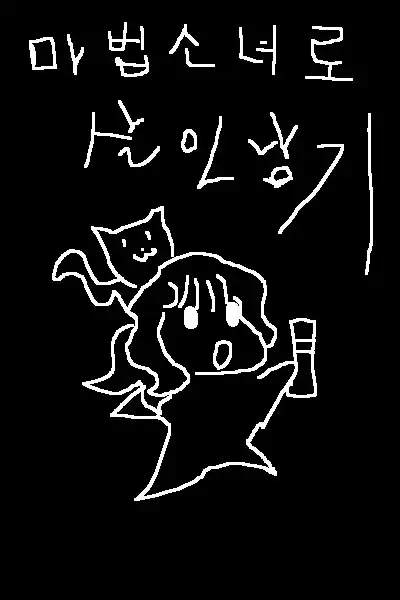 마법소녀로
살아남기